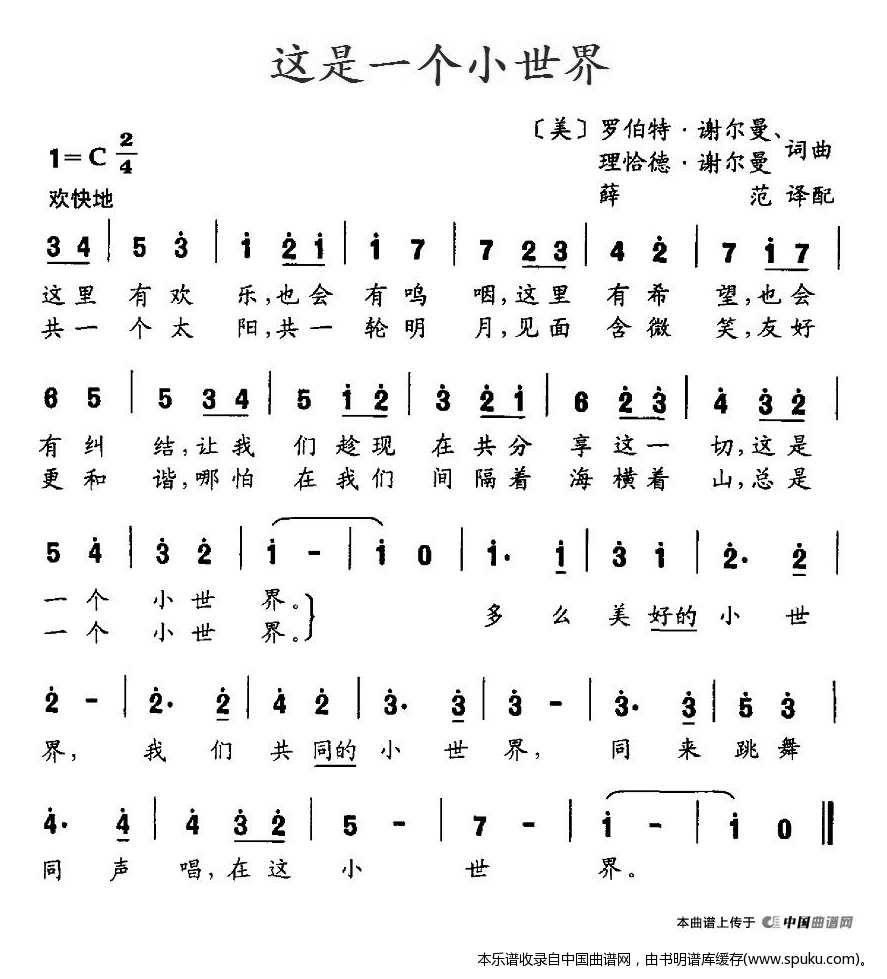 这是一个小世界
〔美〕罗伯特·谢尔曼、
理恰德·谢尔曼 词曲
薛 范 译配
1=C 2/4
欢快地
3 4 | 5 3̇ | 1̇ 2̇ 1̇ | 1̇ 7 | 7 2̇ 3̇ | 4 2̇ | 7 1̇ 7 |
这里 有欢 乐,也会 有呜 咽,这里 有希 望,也会
共一 个太 阳,共一 轮明 月,见面 含微 笑,友好
6 5 | 5 3 4 | 5 1̇ 2̇ | 3̇ 2̇ 1̇ | 6 2̇ 3̇ | 4̇ 3̇ 2̇ |
有纠 结,让我 们趁现 在共分 享这一 切,这是
更和 谐,哪怕 在我们 间隔着 海横着 山,总是
5 4̇ | 3̇ 2̇ | 1̇ - | 1̇ 0 | 1̇· 1̇ | 3̇ 1̇ | 2̇· 2̇ |
一个 小世 界。
多么美好的小世
一个 小世 界。
2̇ - | 2̇· 2̇ | 4̇ 2̇ | 3̇· 3̇ | 3̇ - | 3̇· 3̇ | 5̇ 3̇ |
界, 我们共同的小世界, 同来跳舞
4̇· 4̇ | 4̇ 3̇ 2̇ | 5 - | 7 - | 1̇ - | 1̇ 0 ‖
同声唱,在这小世界。
本曲谱上传于 中国曲谱网
本乐谱收录自中国曲谱网，由书明谱库缓存(www.spuku.com)。